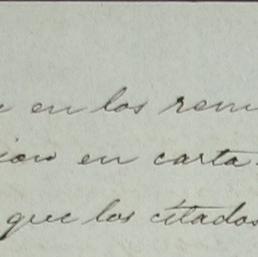 en los rem
ion en carta
que los citados